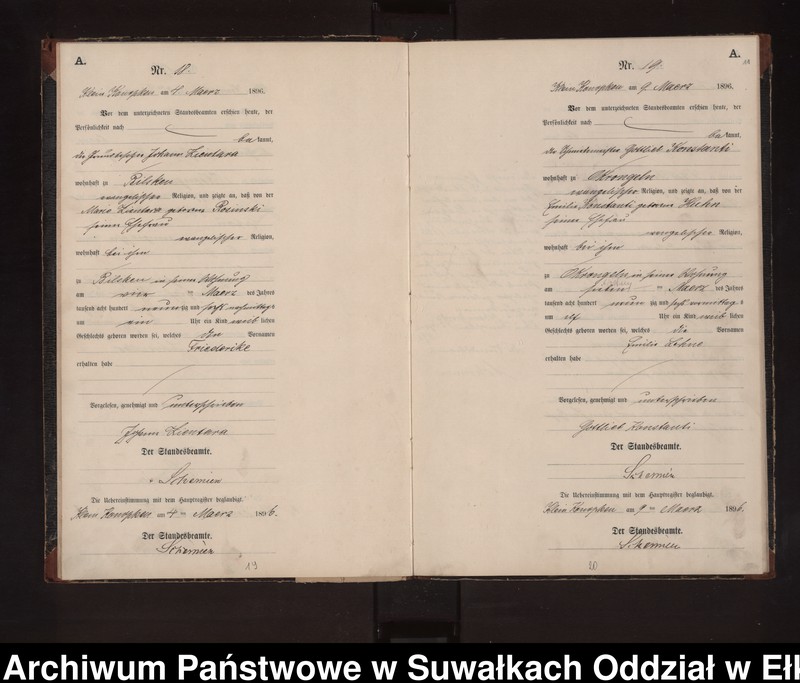 A.
Nr. 18.
Klein Konopken am 4. Maerz 1896.
Vor dem unterzeichneten Standesbeamten erschien heute, der
Persönlichkeit nach
bekannt,
der Johann Lientara
wohnhaft zu Rilsken
evangelischer Religion, und zeigte an, daß von der
Marie Lientara geborene Rosinski
seiner Ehefrau
evangelischer Religion,
wohnhaft bei ihm
zu Rilsken in seiner Wohnung
am vier ten Maerz des Jahres
tausend acht hundert neunzig und sechs vormittags
um ein Uhr ein Kind weib lichen
Geschlechts geboren worden sei, welches den Vornamen
Friederike
erhalten habe
Vorgelesen, genehmigt und unterschrieben
Johann Lientara
Der Standesbeamte.
Schemien
Die Uebereinstimmung mit dem Hauptregister beglaubigt.
Klein Konopken am 4 ten Maerz 1896.
Der Standesbeamte.
Schemien
19
A.
Nr. 19.
Klein Konopken am 9 Maerz 1896.
Vor dem unterzeichneten Standesbeamten erschien heute, der
Persönlichkeit nach
bekannt,
der Gottlieb Konstanti
wohnhaft zu Okrongeln
evangelischer Religion, und zeigte an, daß von der
Emilie Konstanti geborene
seiner Ehefrau
evangelischer Religion,
wohnhaft bei ihm
zu Okrongeln in seiner Wohnung
am sieben ten Maerz des Jahres
tausend acht hundert neunzig und sechs vormittags
um elf Uhr ein Kind weib lichen
Geschlechts geboren worden sei, welches die Vornamen
Emilie
erhalten habe
Vorgelesen, genehmigt und unterschrieben
Gottlieb Konstanti
Der Standesbeamte.
Schemien
Die Uebereinstimmung mit dem Hauptregister beglaubigt.
Klein Konopken am 9 ten Maerz 1896.
Der Standesbeamte.
Schemien
20
Archiwum Państwowe w Suwałkach Oddział w Ełk